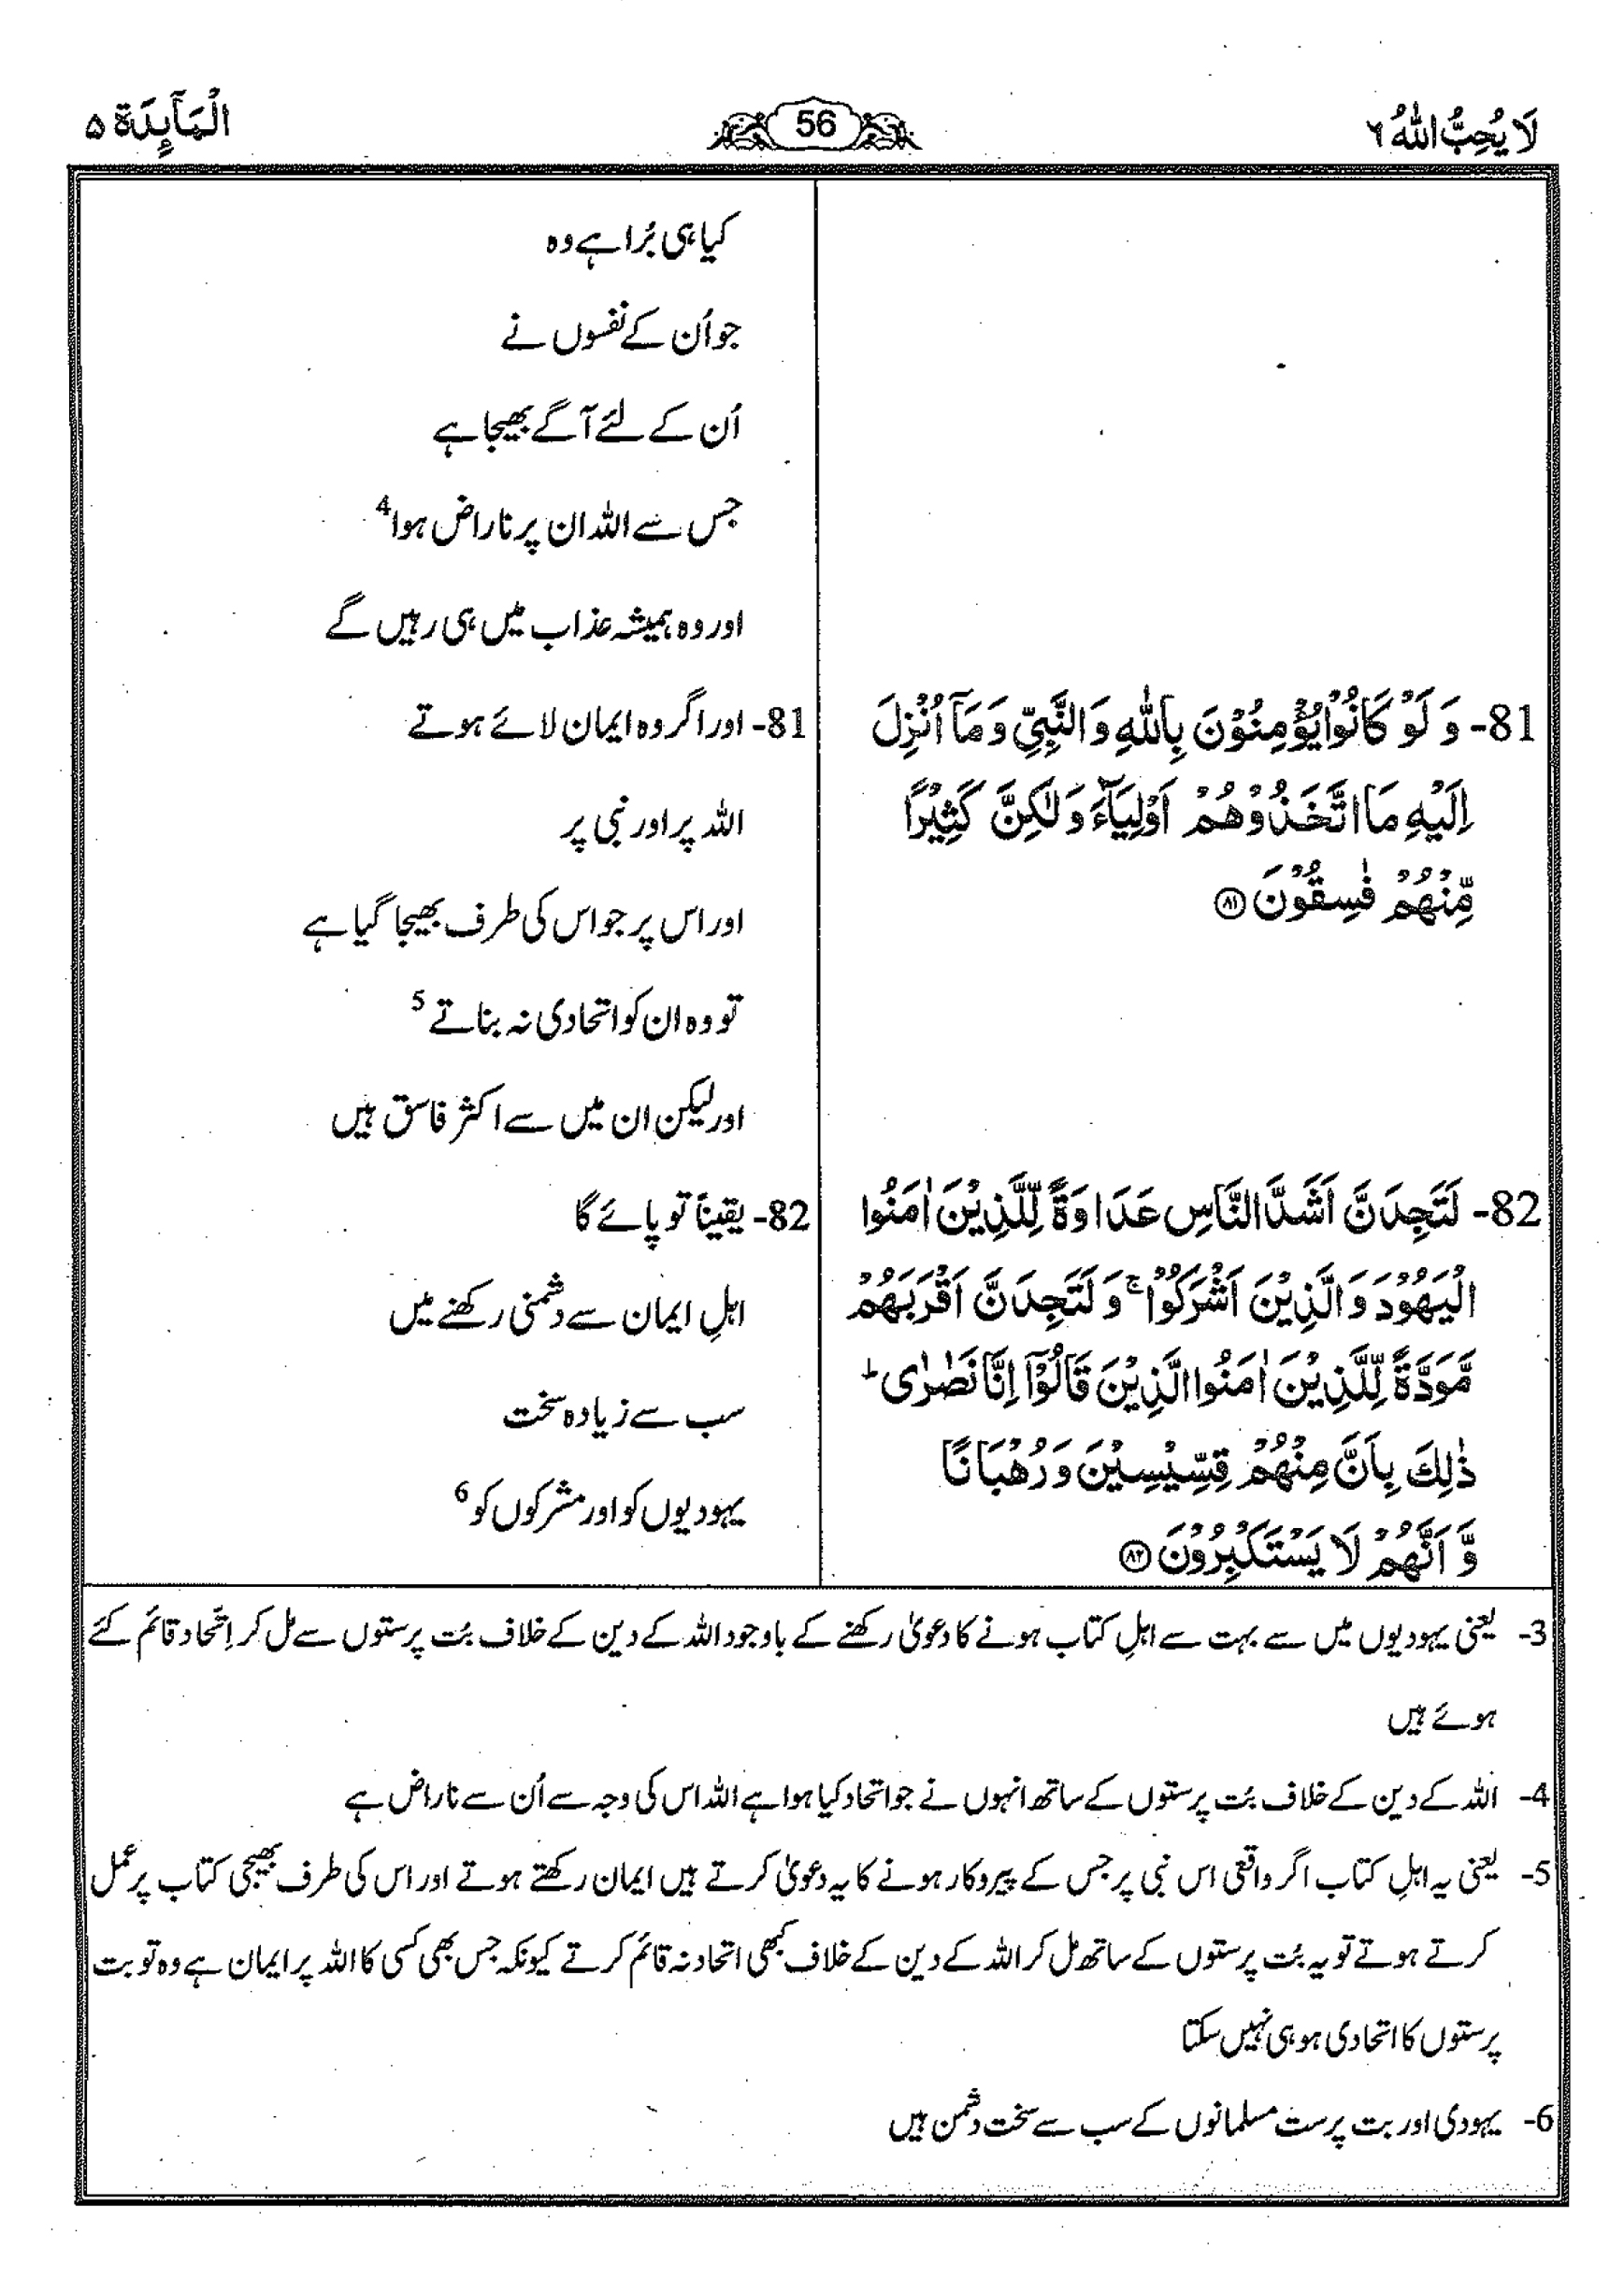 لَا يُحِبُّ اللّٰهُ ۶
56
الْمَآئِدَة ۵
کیا ہی بُرا ہے وہ
جو اُن کے نفسوں نے
اُن کے لئے آگے بھیجا ہے
جس سے اللہ ان پر ناراض ہوا4
اور وہ ہمیشہ عذاب میں ہی رہیں گے
81- وَ لَوْ كَانُوْا يُؤْمِنُوْنَ بِاللّٰهِ وَ النَّبِيِّ وَ مَاۤ اُنْزِلَ
اِلَيْهِ مَا اتَّخَذُوْهُمْ اَوْلِيَآءَ وَ لٰكِنَّ كَثِيْرًا
مِّنْهُمْ فٰسِقُوْنَ ۸۱
81- اور اگر وہ ایمان لائے ہوتے
اللہ پر اور نبی پر
اور اس پر جو اس کی طرف بھیجا گیا ہے
تو وہ ان کو اتحادی نہ بناتے5
اور لیکن ان میں سے اکثر فاسق ہیں
82- لَتَجِدَنَّ اَشَدَّ النَّاسِ عَدَاوَةً لِّلَّذِيْنَ اٰمَنُوا
الْيَهُوْدَ وَ الَّذِيْنَ اَشْرَكُوْا ۚ وَ لَتَجِدَنَّ اَقْرَبَهُمْ
مَّوَدَّةً لِّلَّذِيْنَ اٰمَنُوا الَّذِيْنَ قَالُوْۤا اِنَّا نَصٰرٰى ؕ
ذٰلِكَ بِاَنَّ مِنْهُمْ قِسِّيْسِيْنَ وَ رُهْبَانًا
وَّ اَنَّهُمْ لَا يَسْتَكْبِرُوْنَ ۸۲
82- یقیناً تو پائے گا
اہلِ ایمان سے دشمنی رکھنے میں
سب سے زیادہ سخت
یہودیوں کو اور مشرکوں کو6
3- یعنی یہودیوں میں سے بہت سے اہلِ کتاب ہونے کا دعویٰ رکھنے کے باوجود اللہ کے دین کے خلاف بُت پرستوں سے مل کر اِتّحاد قائم کئے
ہوئے ہیں
4- اللہ کے دین کے خلاف بُت پرستوں کے ساتھ انہوں نے جو اتحاد کیا ہوا ہے اللہ اس کی وجہ سے اُن سے ناراض ہے
5- یعنی یہ اہلِ کتاب اگر واقعی اس نبی پر جس کے پیروکار ہونے کا یہ دعویٰ کرتے ہیں ایمان رکھتے ہوتے اور اس کی طرف بھیجی کتاب پر عمل
کرتے ہوتے تو یہ بُت پرستوں کے ساتھ مل کر اللہ کے دین کے خلاف کبھی اتحاد نہ قائم کرتے کیونکہ جس بھی کسی کا اللہ پر ایمان ہے وہ تو بت
پرستوں کا اتحادی ہو ہی نہیں سکتا
6- یہودی اور بت پرست مسلمانوں کے سب سے سخت دشمن ہیں